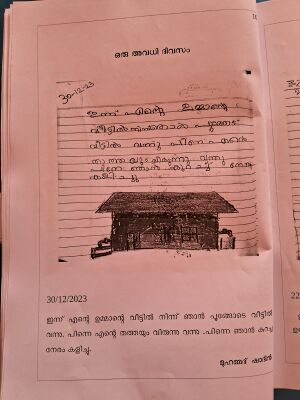 ഒരു അവധി ദിവസം
30-12-23
ഇന്ന് എന്റെ ഉമ്മാന്റെ
വീട്ടിൽ
വീട്ടിൽ വന്നു പിന്നെ
വന്നു
പിന്നെ ഞാൻ കുറച്ച് നേരം
കളിച്ചു
30/12/2023
ഇന്ന് എന്റെ ഉമ്മാന്റെ വീട്ടിൽ നിന്ന് ഞാൻ പൂങ്ങോടെ വീട്ടിൽ
വന്നു. പിന്നെ എന്റെ തത്തയും വിരുന്നു വന്നു .പിന്നെ ഞാൻ കുറച്ച
നേരം കളിച്ചു.
മുഹമ്മദ് ഷാദിൻ